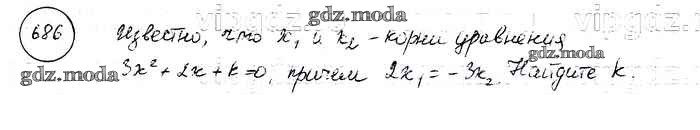 686 Известно, что x₁ и x₂ - корни уравнения
3x² + 2x + k = 0, причем 2x₁ = -3x₂. Найдите k.
gdz.moda
gdz.moda
gdz.moda
gdz.moda